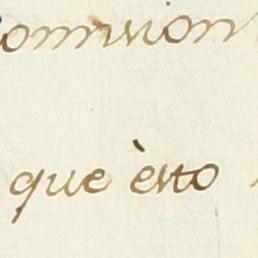 Comision
que èsto